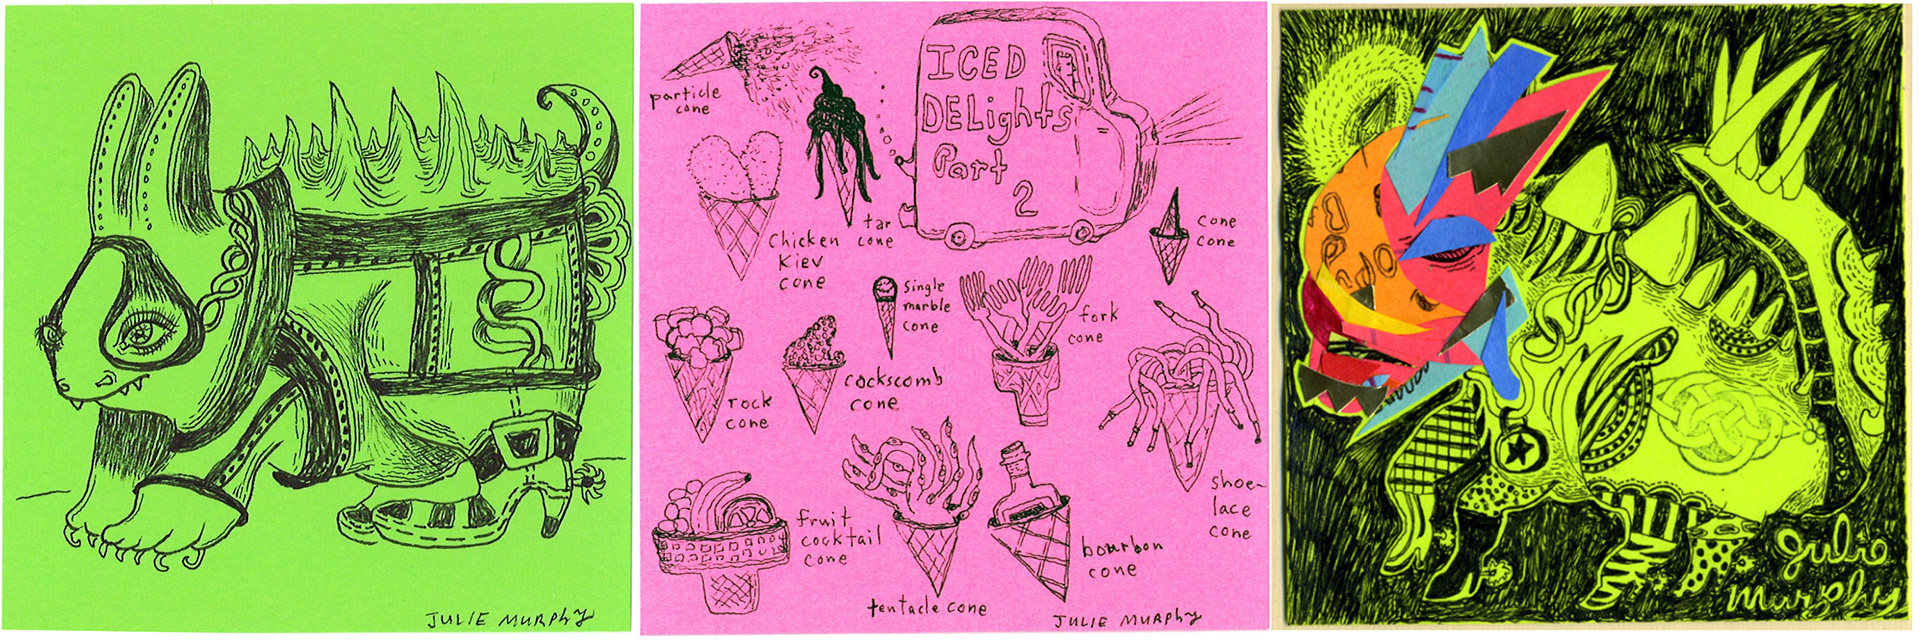 JULIE MURPHY
ICED
DELights
Part
2
particle
cone
tar
cone
Chicken
Kiev
cone
cone
cone
single
marble
cone
fork
cone
rock
cone
cockscomb
cone
shoe-
lace
cone
fruit
cocktail
cone
tentacle cone
bourbon
cone
JULIE MURPHY
Julie
Murphy